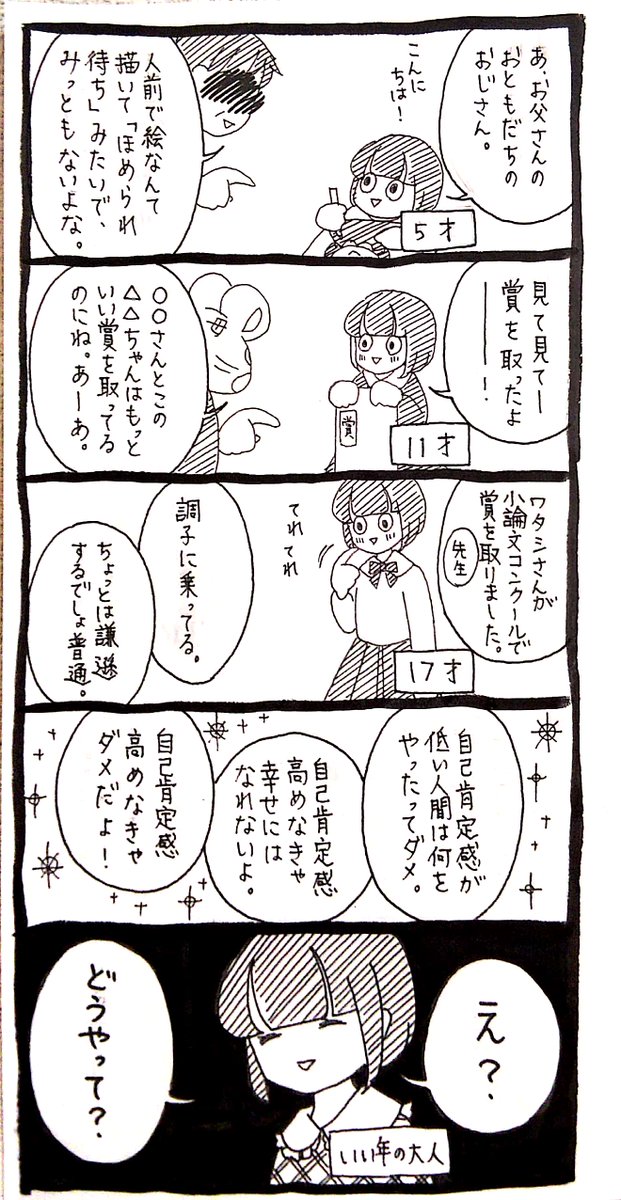 あ、お父さんの
おともだちの
おじさん。
こんに
ちは！
5才
人前で絵なんて
描いて「ほめられ
待ち」みたいで、
みっともないよな。
見て見てー
賞を取ったよ
ーーー！
賞
11才
〇〇さんとこの
△△ちゃんはもっと
いい賞を取ってる
のにね。あーあ。
ワタシさんが
小論文コンクールで
賞を取りました。
先生
てれてれ
17才
調子に乗ってる。
ちょっとは謙遜
するでしょ普通。
自己肯定感が
低い人間は何を
やったってダメ。
自己肯定感
高めなきゃ
幸せには
なれないよ。
自己肯定感
高めなきゃ
ダメだよ！
え？
いい年の大人
どうやって？